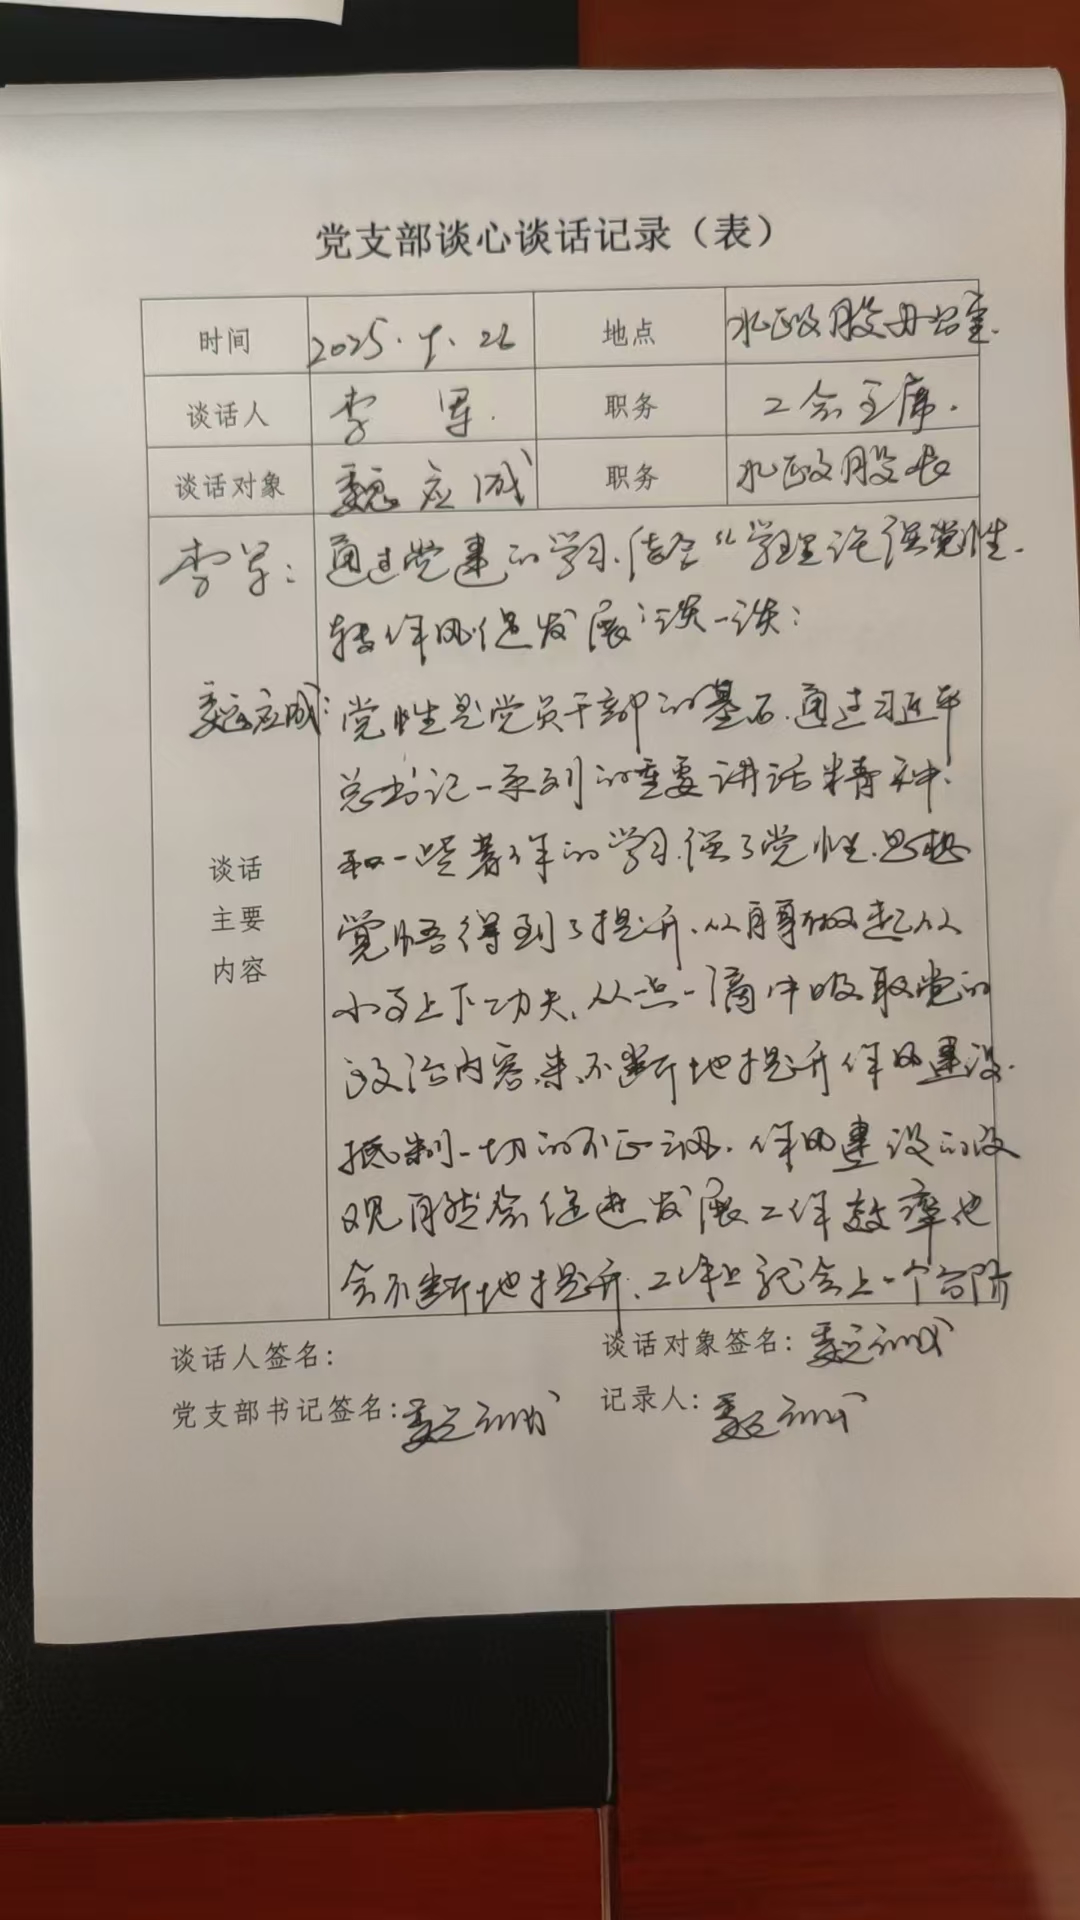 党支部谈心谈话记录（表）
时间 2025. 地点 水政股办公室.
谈话人 李军. 职务 工会主席.
谈话对象 魏应成 职务 水政股长
李军: 通过党建的学习.结合“学理论强党性.
转作风促发展”谈一谈:
魏应成: 党性是党员干部的基石.通过习近平
总书记一系列的重要讲话精神.
和一些著作的学习.强了党性.思想
觉悟得到了提升.从自身做起从
小事上下功夫.从一点一滴中吸取党的
政治内容.来不断地提升作风建设.
抵制一切的不正之风.作风建设的改
观自然会促进发展工作效率也
会不断地提升.工作上就会上一个台阶
谈话
主要
内容
谈话人签名: 谈话对象签名: 魏应成
党支部书记签名: 魏应成 记录人: 魏应成